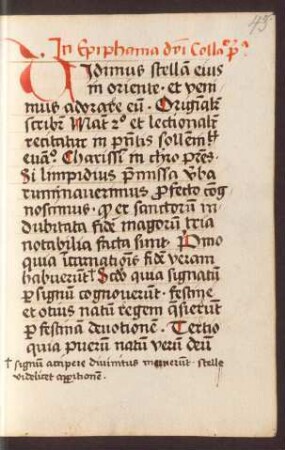 45
In Epiphania dni Colla° p°
Vidimus stellam eius
in oriente · et veni
mus adorare eū · Originalr̄
scribr̄ Mat̄ 2° et lectionalr̄
recitatur in p̄ntis sollem̄
evāg° Charissi in chro p̄res
Si limpidius p̄missa v̄ba
ruminaverimus p̄fecto cog
noscimus · et sanctorū in
dubitata fide magorū tria
notabilia facta sunt · P̄mo
quia fidē veram
habuerūt † Scdo quia signatū
p signū cognoverunt · festine
et otius natū regem q̄sierūt
p festinā devotionē · Tertio
quia puerū natū verū deū
† signū accipere divinitus meruerūt · stelle
videlicet apparitionē ·